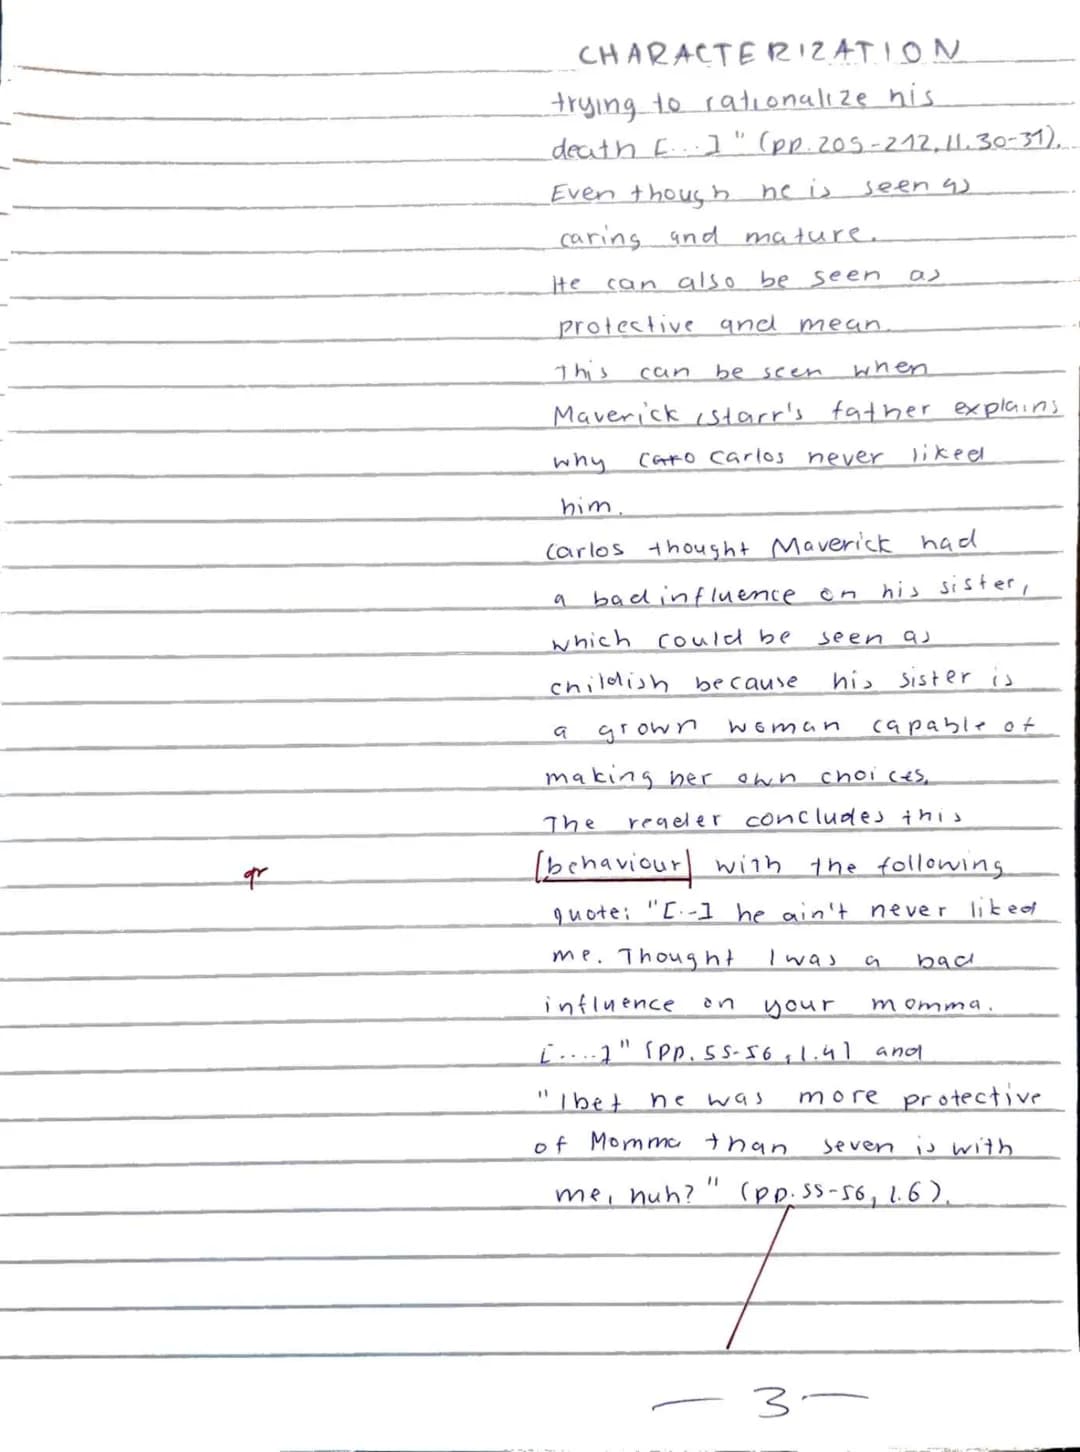 CHARACTERIZATION
trying to rationalize his
death [...]" (pp. 205-212, ll. 30-31).
Even though he is seen as
caring and mature.
He can also be seen as
protective and mean.
This can be seen when
Maverick, Starr's father explains
why Caro Carlos never liked
him.
Carlos thought Maverick had
a bad influence on his sister,
which could be seen as
childish because his sister is
a grown woman capable of
making her own choices.
The reader concludes this
gr [behaviour] with the following
quote: "[..] he ain't never liked
me. Thought I was a bad
influence on your momma.
[....]" [pp. 55-56, l. 4] and
"I bet he was more protective
of Momma than seven is with
me, huh?" (pp. 55-56, l. 6).
- 3 -